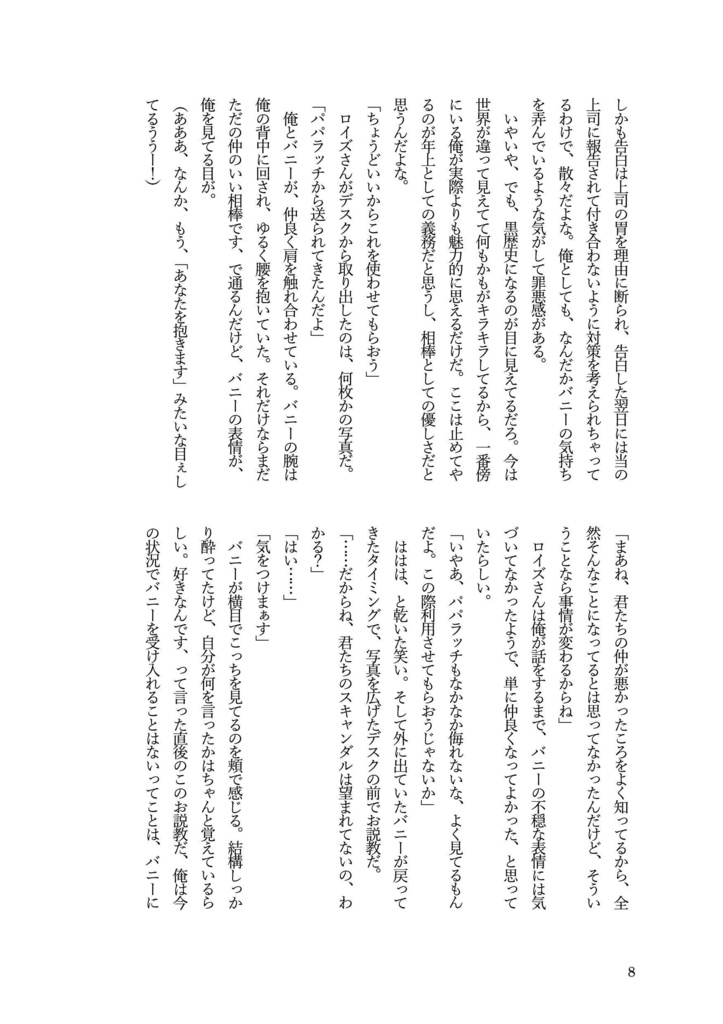 しかも告白は上司の胃を理由に断られ、告白した翌日には当の
上司に報告されて付き合わないように対策を考えられちゃって
るわけで、散々だよな。俺としても、なんだかバニーの気持ち
を弄んでいるような気がして罪悪感がある。
いやいや、でも、黒歴史になるのが目に見えてるだろ。今は
世界が違って見えてて何もかもがキラキラしてるから、一番傍
にいる俺が実際よりも魅力的に思えるだけだ。ここは止めてや
るのが年上としての義務だと思うし、相棒としての優しさだと
思うんだよな。
「ちょうどいいからこれを使わせてもらおう」
ロイズさんがデスクから取り出したのは、何枚かの写真だ。
「パパラッチから送られてきたんだよ」
俺とバニーが、仲良く肩を触れ合わせている。バニーの腕は
俺の背中に回され、ゆるく腰を抱いていた。それだけならまだ
ただの仲のいい相棒です、で通るんだけど、バニーの表情が、
俺を見てる目が。
（あああ、なんか、もう、「あなたを抱きます」みたいな目ぇし
てるううー！）
「まあね、君たちの仲が悪かったころをよく知ってるから、全
然そんなことになってるとは思ってなかったんだけど、そうい
うことなら事情が変わるからね」
ロイズさんは俺が話をするまで、バニーの不穏な表情には気
づいてなかったようで、単に仲良くなってよかった、と思って
いたらしい。
「いやあ、パパラッチもなかなか侮れないな、よく見てるもん
だよ。この際利用させてもらおうじゃないか」
ははは、と乾いた笑い。そして外に出ていたバニーが戻って
きたタイミングで、写真を広げたデスクの前でお説教だ。
「……だからね、君たちのスキャンダルは望まれてないの、わ
かる？」
「はい……」
「気をつけまぁす」
バニーが横目でこっちを見てるのを頬で感じる。結構しっか
り酔ってたけど、自分が何を言ったかはちゃんと覚えているら
しい。好きなんです、って言った直後のこのお説教だ、俺は今
の状況でバニーを受け入れることはないってことは、バニーに
8